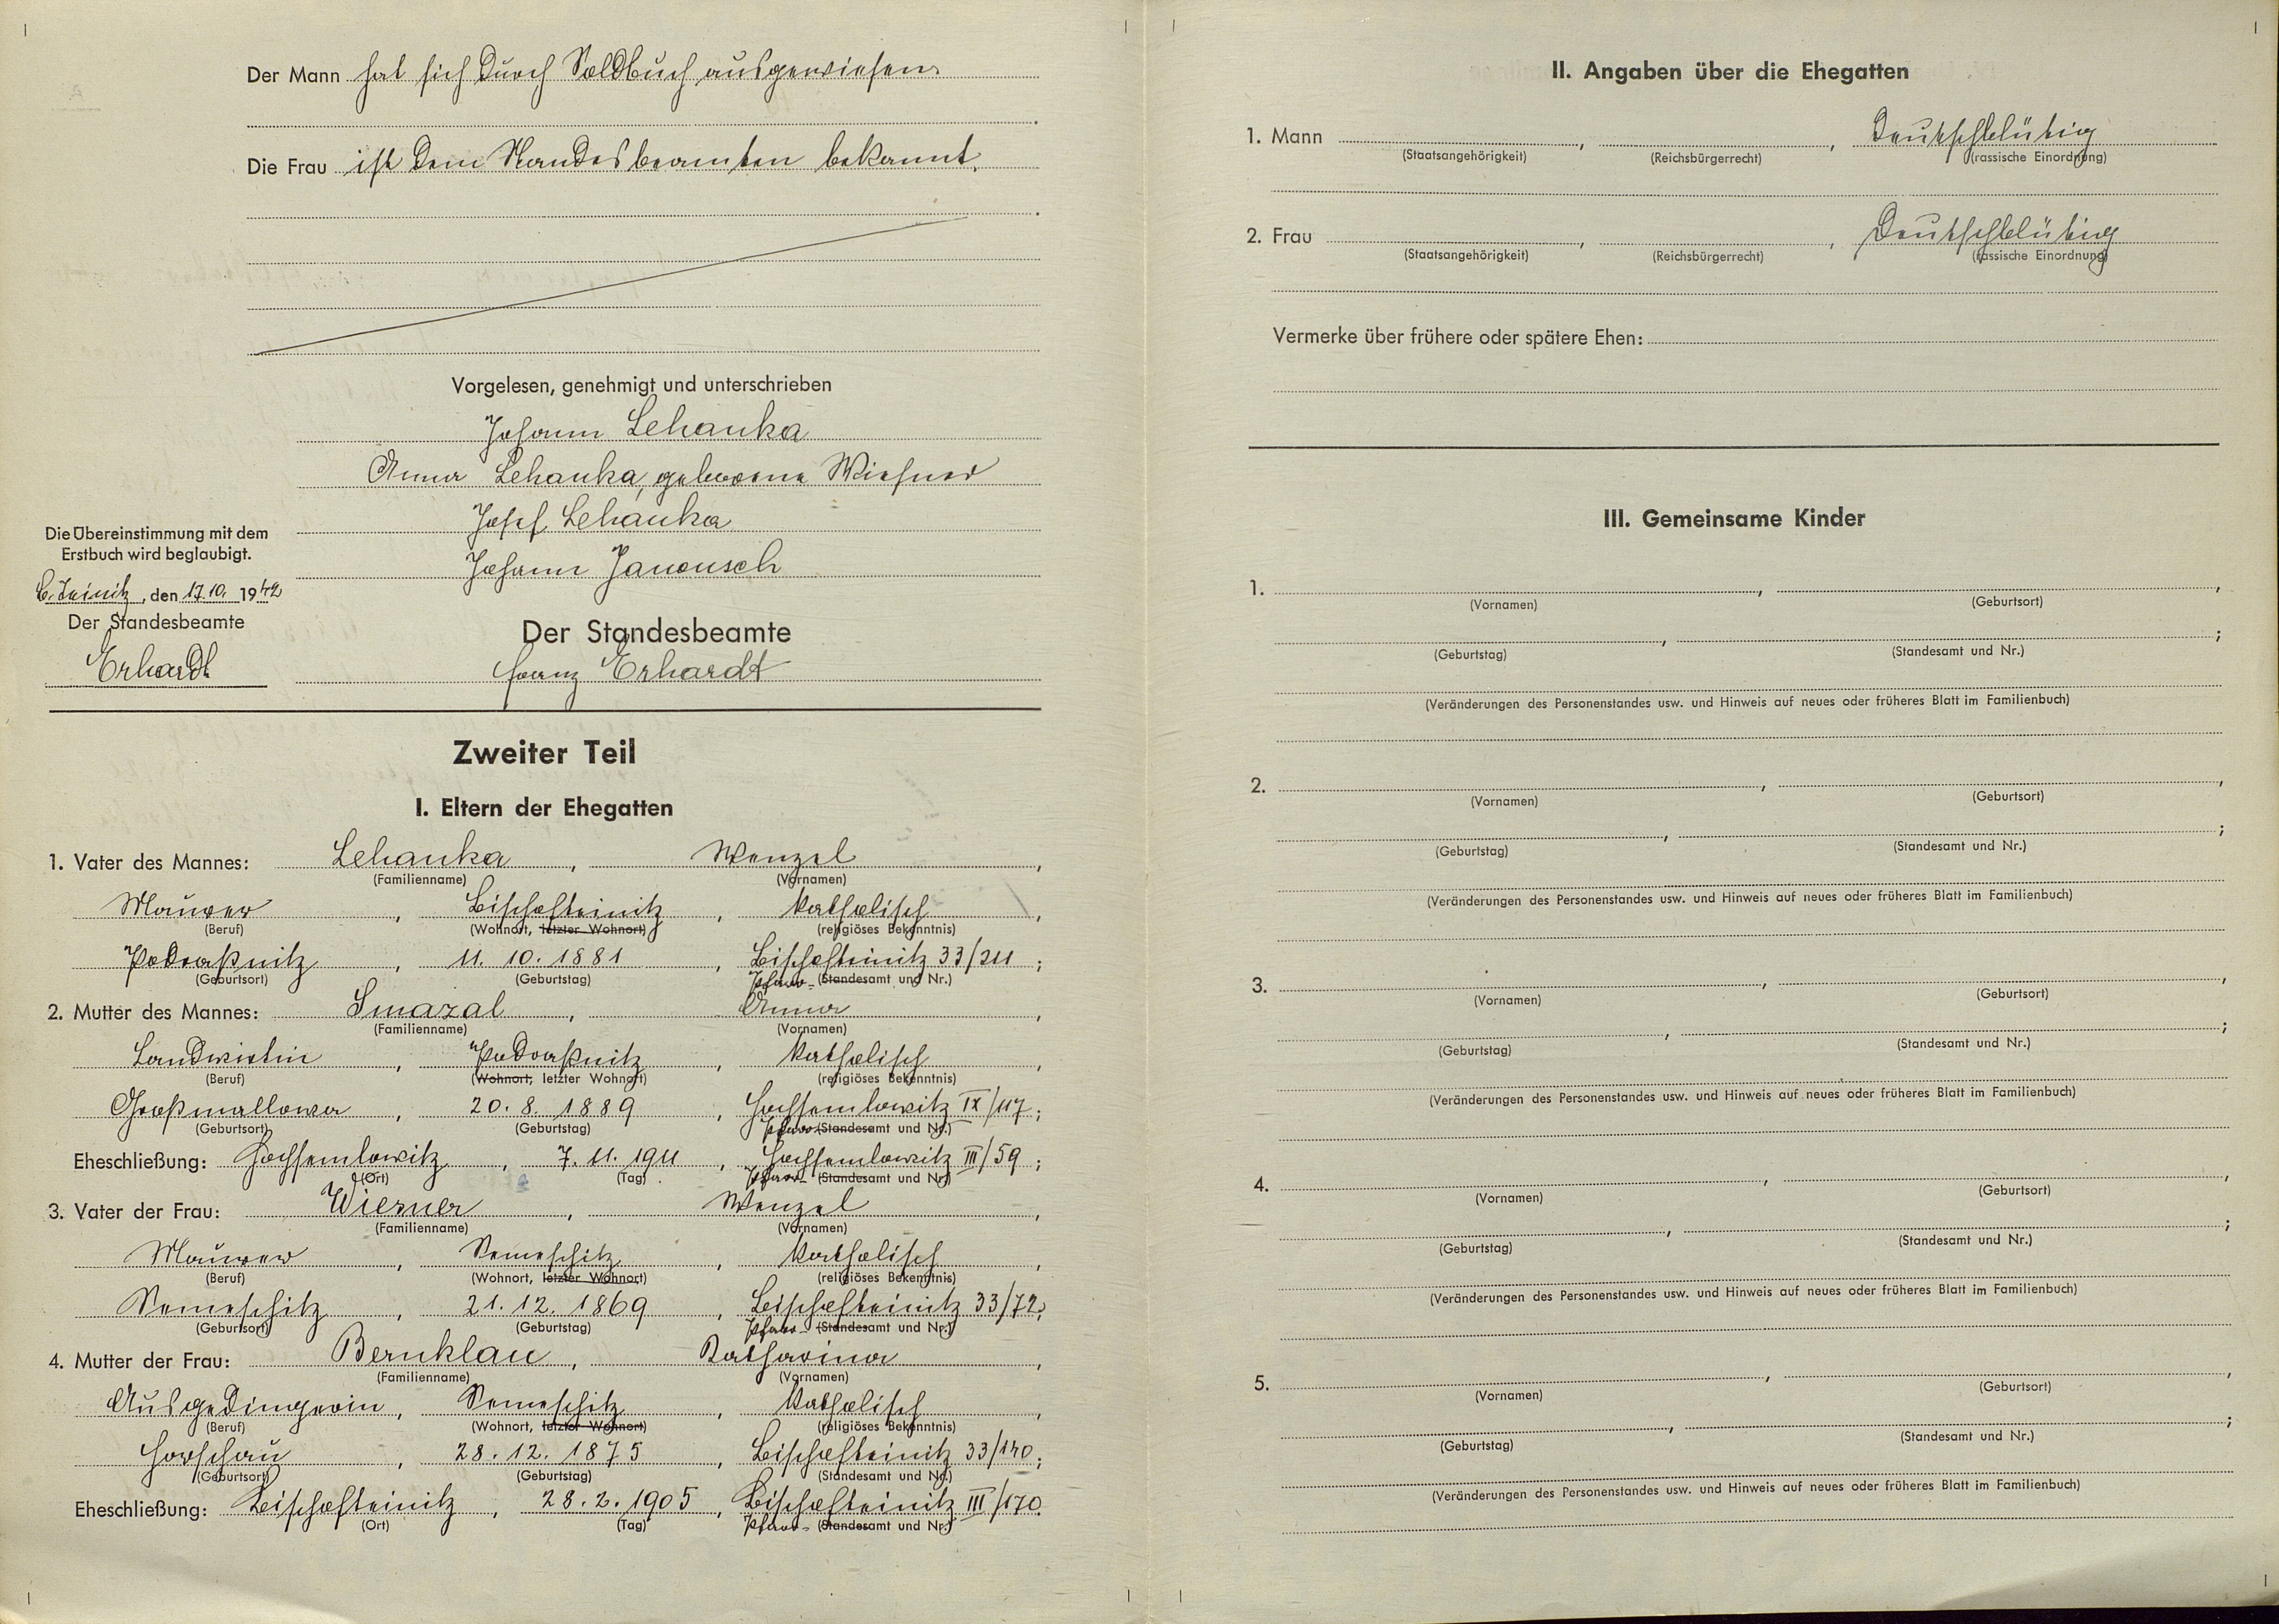 Der Mann hat sich durch Soldbuch ausgewiesen.
Die Frau ist dem Standesbeamten bekannt.
Vorgelesen, genehmigt und unterschrieben
Johann Lehanka
Anna Lehanka, geborene Wiesner
Josef Lehanka
Johann Janousch
Die Übereinstimmung mit dem
Erstbuch wird beglaubigt.
B. Teinitz, den 17.10. 1942
Der Standesbeamte
Erhardt
Der Standesbeamte
Franz Erhardt
Zweiter Teil
I. Eltern der Ehegatten
1. Vater des Mannes: Lehanka, Wenzel,
(Familienname) (Vornamen)
Maurer, Bischofteinitz, katholisch,
(Beruf) (Wohnort, letzter Wohnort) (religiöses Bekenntnis)
Podraßnitz, 11. 10. 1881, Bischofteinitz 33/211;
(Geburtsort) (Geburtstag) Pfarr- (Standesamt und Nr.)
2. Mutter des Mannes: Smazal, Anna,
(Familienname) (Vornamen)
Landwirtin, Podraßnitz, katholisch,
(Beruf) (Wohnort, letzter Wohnort) (religiöses Bekenntnis)
Großmallowa, 20. 8. 1889, Hochsemlowitz IX/117;
(Geburtsort) (Geburtstag) Pfarr- (Standesamt und Nr.)
Eheschließung: Hochsemlowitz, 7. 11. 1911, Hochsemlowitz III/59;
(Ort) (Tag) Pfarr- (Standesamt und Nr.)
3. Vater der Frau: Wiesner, Wenzel,
(Familienname) (Vornamen)
Maurer, Semeschitz, katholisch,
(Beruf) (Wohnort, letzter Wohnort) (religiöses Bekenntnis)
Semeschitz, 21. 12. 1869, Bischofteinitz 33/72;
(Geburtsort) (Geburtstag) Pfarr- (Standesamt und Nr.)
4. Mutter der Frau: Bernklau, Katharina,
(Familienname) (Vornamen)
Ausgedingerin, Semeschitz, katholisch,
(Beruf) (Wohnort, letzter Wohnort) (religiöses Bekenntnis)
Horschau, 28. 12. 1875, Bischofteinitz 33/140;
(Geburtsort) (Geburtstag) (Standesamt und Nr.)
Eheschließung: Bischofteinitz, 28. 2. 1905, Bischofteinitz III/170.
(Ort) (Tag) Pfarr- (Standesamt und Nr.)
II. Angaben über die Ehegatten
1. Mann , , Deutschblütig
(Staatsangehörigkeit) (Reichsbürgerrecht) (rassische Einordnung)
2. Frau , , Deutschblütig
(Staatsangehörigkeit) (Reichsbürgerrecht) (rassische Einordnung)
Vermerke über frühere oder spätere Ehen:
III. Gemeinsame Kinder
1. , ,
(Vornamen) (Geburtsort)
, ;
(Geburtstag) (Standesamt und Nr.)
(Veränderungen des Personenstandes usw. und Hinweis auf neues oder früheres Blatt im Familienbuch)
2. , ,
(Vornamen) (Geburtsort)
, ;
(Geburtstag) (Standesamt und Nr.)
(Veränderungen des Personenstandes usw. und Hinweis auf neues oder früheres Blatt im Familienbuch)
3. , ,
(Vornamen) (Geburtsort)
, ;
(Geburtstag) (Standesamt und Nr.)
(Veränderungen des Personenstandes usw. und Hinweis auf neues oder früheres Blatt im Familienbuch)
4. , ,
(Vornamen) (Geburtsort)
, ;
(Geburtstag) (Standesamt und Nr.)
(Veränderungen des Personenstandes usw. und Hinweis auf neues oder früheres Blatt im Familienbuch)
5. , ,
(Vornamen) (Geburtsort)
, ;
(Geburtstag) (Standesamt und Nr.)
(Veränderungen des Personenstandes usw. und Hinweis auf neues oder früheres Blatt im Familienbuch)